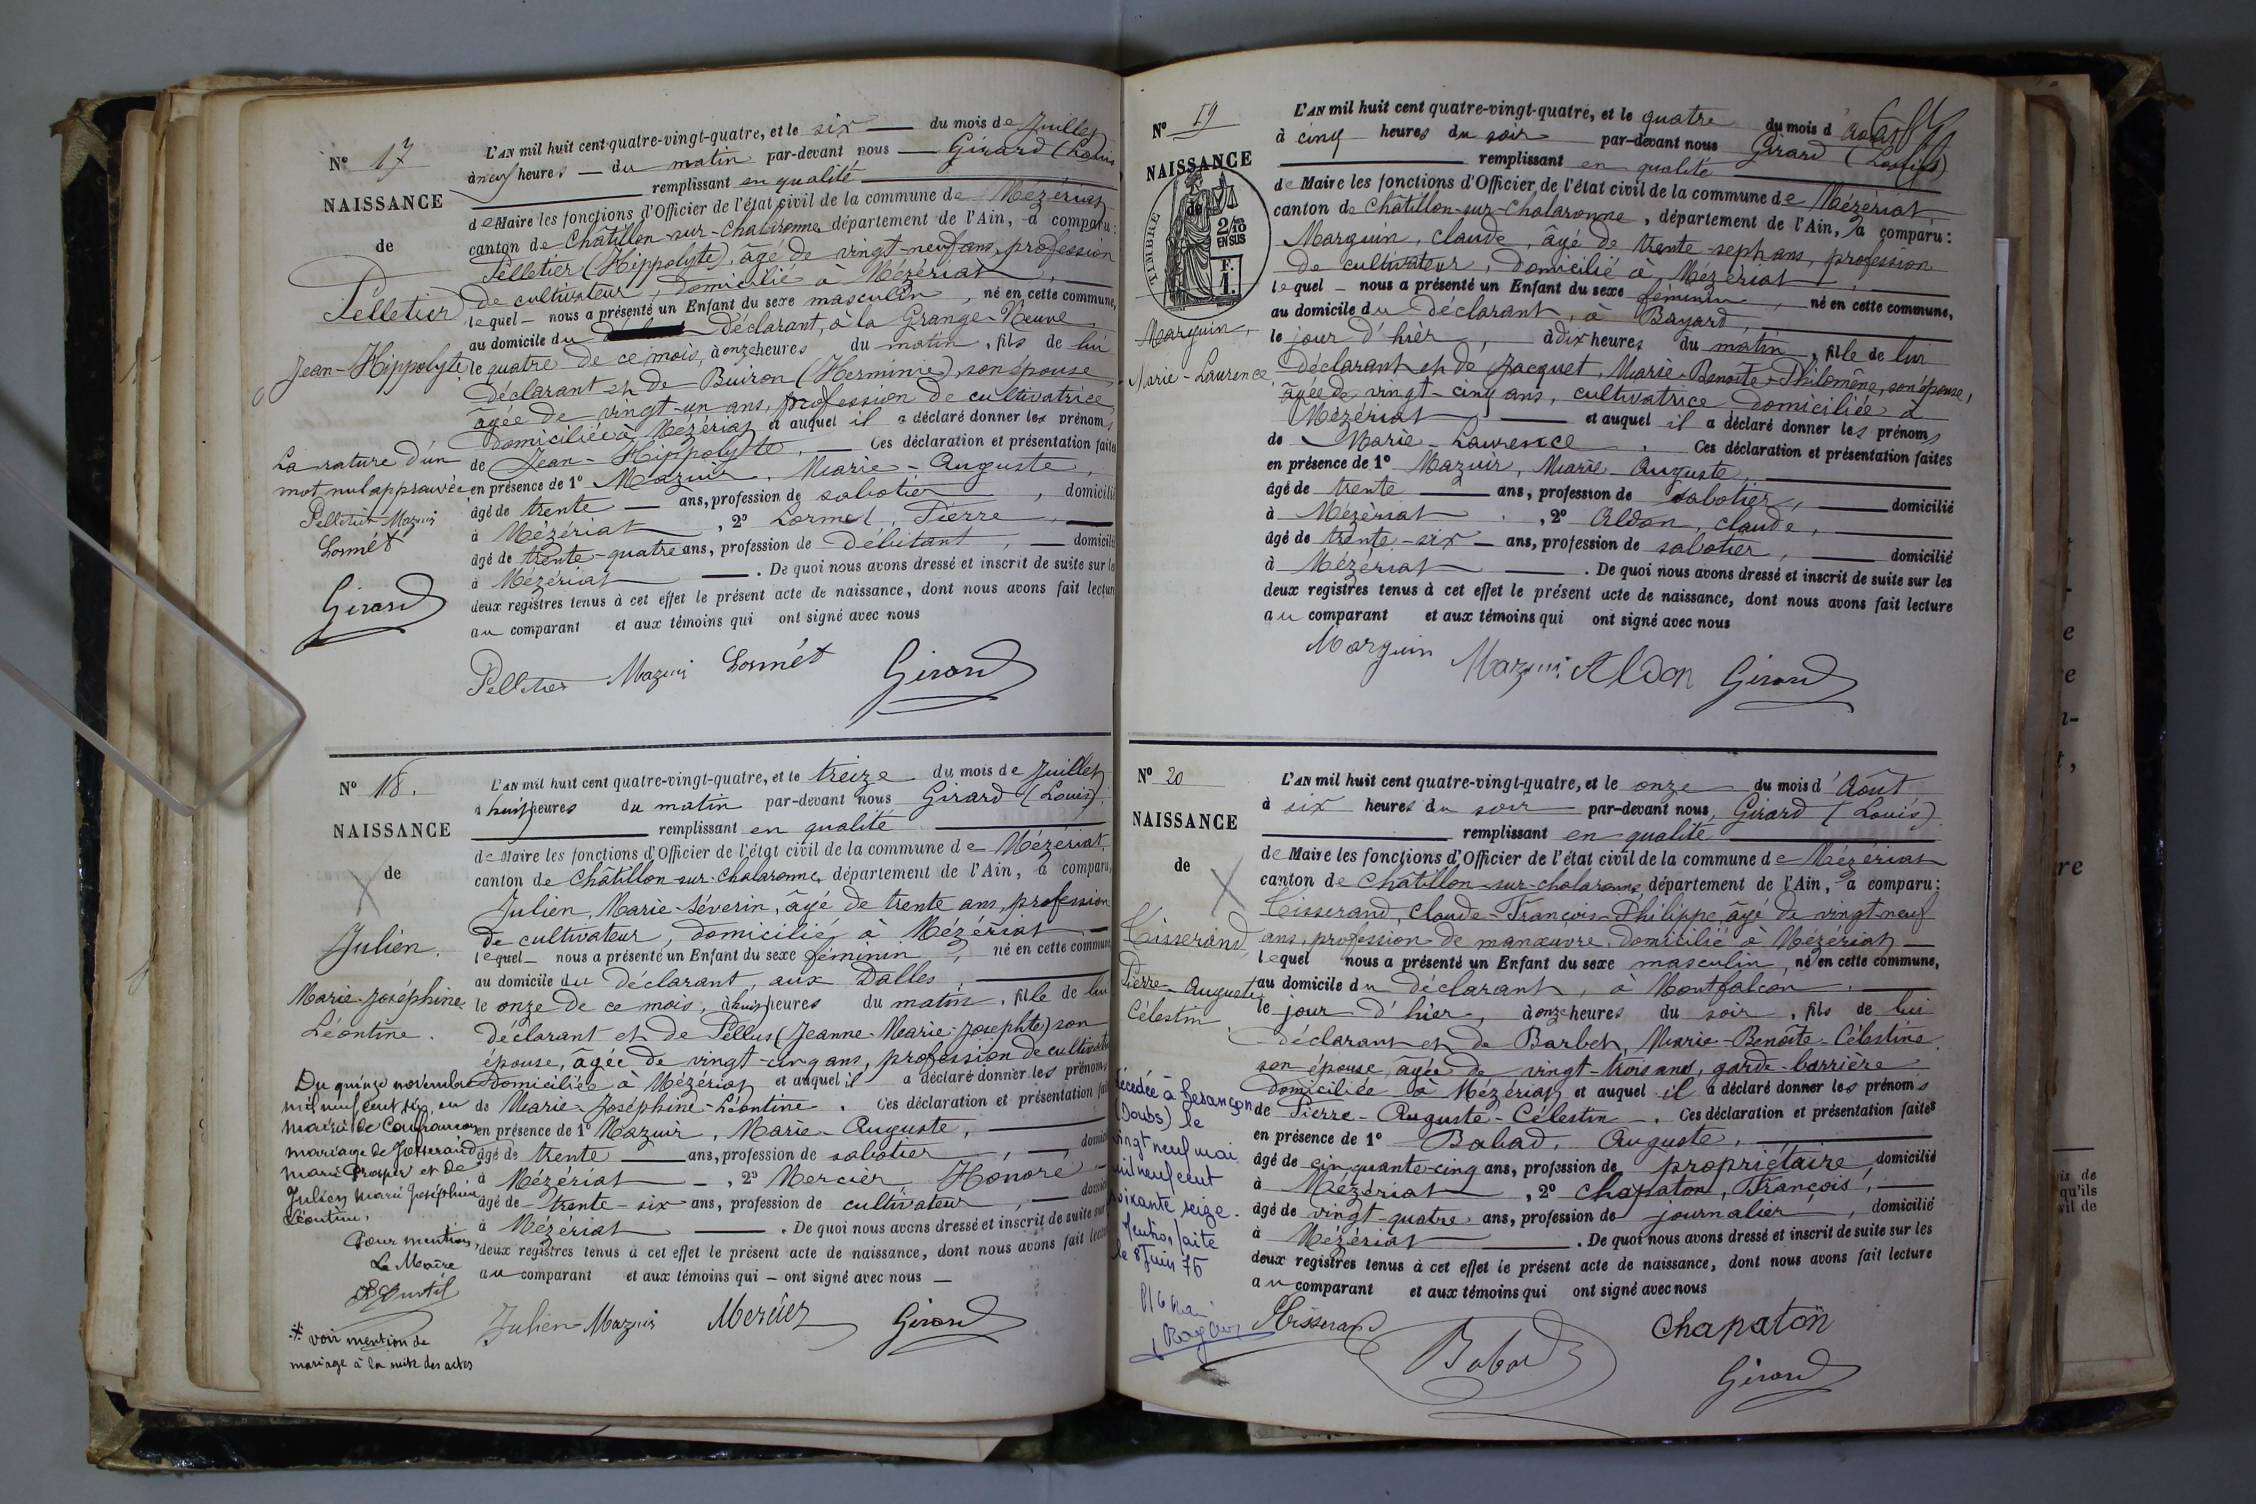 N° 17
NAISSANCE
de
Pelletier
Jean-Hippolyte
La rature d'un
mot nul approuvée
Pelletier Mazuir
Lormet
Girard
L'AN mil huit cent quatre-vingt-quatre, et le six du mois de Juillet
à neuf heures du matin par-devant nous Girard (Louis
remplissant en qualité
de Maire les fonctions d'Officier de l'état civil de la commune de Mézériat
canton de Châtillon-sur-Chalaronne département de l'Ain, a comparu :
Pelletier (Hippolyte), âgé de vingt-neuf ans, profession
de cultivateur, domicilié à Mézériat,
lequel nous a présenté un Enfant du sexe masculin, né en cette commune,
au domicile du déclarant, à la Grange-Neuve
le quatre de ce mois, à onze heures du matin, fils de lui
déclarant et de Buiron (Herminie), son épouse
âgée de vingt-un ans, profession de cultivatrice,
domiciliée à Mézériat et auquel il a déclaré donner les prénoms
de Jean-Hippolyte. Ces déclaration et présentation faites
en présence de 1° Mazuir, Marie-Auguste,
âgé de trente ans, profession de sabotier, domicilié
à Mézériat, 2° Lormet, Pierre,
âgé de trente-quatre ans, profession de Débitant, domicilié
à Mézériat. De quoi nous avons dressé et inscrit de suite sur les
deux registres tenus à cet effet le présent acte de naissance, dont nous avons fait lecture
au comparant et aux témoins qui ont signé avec nous
Pelletier Mazuir Lormet Girard
N° 18.
NAISSANCE
de
Julien.
Marie-Joséphine
Léontine.
Du quinze novembre
mil neuf cent six, en
mairie de Confrançon
mariage de Josserand
Marie Prosper et de
Julien Marie Joséphine
Léontine.
Pour mention,
Le Maire
* voir mention de
mariage à la suite des actes
L'AN mil huit cent quatre-vingt-quatre, et le treize du mois de Juillet
à huit heures du matin par-devant nous Girard (Louis)
remplissant en qualité
de Maire les fonctions d'Officier de l'état civil de la commune de Mézériat
canton de Châtillon-sur-Chalaronne, département de l'Ain, a comparu,
Julien, Marie-Séverin, âgé de trente ans, profession
de cultivateur, domicilié à Mézériat
lequel nous a présenté un Enfant du sexe féminin, né en cette commune
au domicile du déclarant, aux Dalles,
le onze de ce mois, à huit heures du matin, fille de lui
déclarant et de Pellus (Jeanne-Marie-Josephte) son
épouse, âgée de vingt-cinq ans, profession de cultivatrice
domiciliée à Mézériat et auquel il a déclaré donner les prénoms
de Marie-Joséphine-Léontine. Ces déclaration et présentation faites
en présence de 1° Mazuir, Marie-Auguste,
âgé de trente ans, profession de sabotier, domicilié
à Mézériat, 2° Mercier, Honoré
âgé de trente-six ans, profession de cultivateur, domicilié
à Mézériat. De quoi nous avons dressé et inscrit de suite sur
deux registres tenus à cet effet le présent acte de naissance, dont nous avons fait lecture
au comparant et aux témoins qui ont signé avec nous
Julien Mazuir Mercier Girard
N° 19
NAISSANCE
de
TIMBRE
2/10 EN SUS
F. 1.
Marguin,
Marie-Laurence
L'AN mil huit cent quatre-vingt-quatre, et le quatre du mois d'août
à cinq heures du soir par-devant nous Girard (Louis)
remplissant en qualité
de Maire les fonctions d'Officier de l'état civil de la commune de Mézériat,
canton de Châtillon-sur-Chalaronne, département de l'Ain, a comparu :
Marguin, Claude, âgé de trente-sept ans, profession
de cultivateur, domicilié à Mézériat,
lequel nous a présenté un Enfant du sexe féminin, né en cette commune,
au domicile du déclarant, à Bayard,
le jour d'hier, à dix heures du matin, fille de lui
déclarant et de Jacquet, Marie-Benoîte-Philomène, son épouse,
âgée de vingt-cinq ans, cultivatrice domiciliée à
Mézériat et auquel il a déclaré donner les prénoms
de Marie-Laurence. Ces déclaration et présentation faites
en présence de 1° Mazuir, Marie-Auguste,
âgé de trente ans, profession de sabotier, domicilié
à Mézériat, 2° Aldon, Claude,
âgé de trente-six ans, profession de sabotier, domicilié
à Mézériat. De quoi nous avons dressé et inscrit de suite sur les
deux registres tenus à cet effet le présent acte de naissance, dont nous avons fait lecture
au comparant et aux témoins qui ont signé avec nous
Marguin Mazuir Aldon Girard
N° 20
NAISSANCE
de
Tisserand,
Pierre-Auguste
Célestin
décedée à Besançon
(Doubs) le
vingt neuf mai
mil neuf cent
soixante seize.
Mention faite
le 8 Juin 76
L'AN mil huit cent quatre-vingt-quatre, et le onze du mois d'Août
à six heures du soir par-devant nous, Girard (Louis)
remplissant en qualité
de Maire les fonctions d'Officier de l'état civil de la commune de Mézériat
canton de Châtillon-sur-Chalaronne département de l'Ain, a comparu :
Tisserand, Claude-François-Philippe, âgé de vingt-neuf
ans, profession de manœuvre, domicilié à Mézériat
lequel nous a présenté un Enfant du sexe masculin, né en cette commune,
au domicile du déclarant, à Montfalcon,
le jour d'hier, à onze heures du soir, fils de lui
déclarant et de Barbet, Marie-Benoîte-Célestine
son épouse, âgée de vingt-trois ans, garde-barrière
domiciliée à Mézériat et auquel il a déclaré donner les prénoms
de Pierre-Auguste-Célestin. Ces déclaration et présentation faites
en présence de 1° Babad, Auguste,
âgé de cinquante-cinq ans, profession de propriétaire, domicilié
à Mézériat, 2° Chapaton, François,
âgé de vingt-quatre ans, profession de journalier, domicilié
à Mézériat. De quoi nous avons dressé et inscrit de suite sur les
deux registres tenus à cet effet le présent acte de naissance, dont nous avons fait lecture
au comparant et aux témoins qui ont signé avec nous
Tisserand Babad Chapaton
Girard